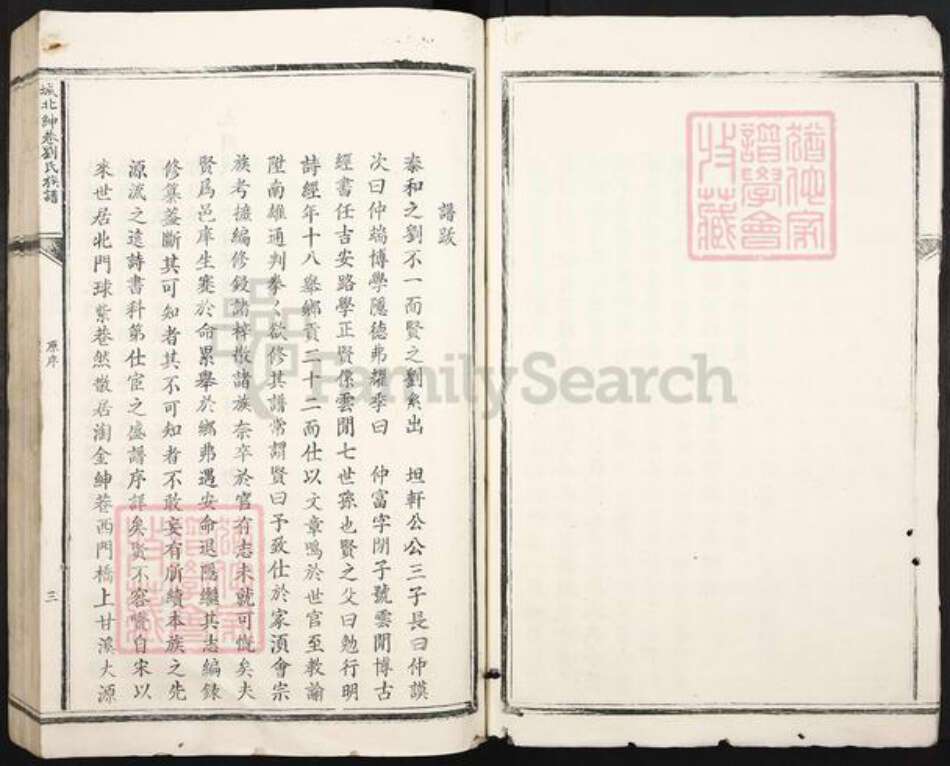 譜跋
泰和之劉不一而賢之劉系出 坦軒公公三子長曰仲謨
次曰仲端博學隱德弗耀季曰 仲富字閒子號雲閒博古
經書任吉安路學正賢係雲閒七世孫也賢之父曰勉行明
詩經年十八舉鄉貢二十二而仕以文章鳴於世官至教諭
陞南雄通判拳〻欲修其譜常謂賢曰予致仕於家湏會宗
族考據編修鋟諸梓散諸族奈卒於官有志未就可慨矣夫
賢爲邑庠生蹇於命累舉於鄉弗遇安命退隱繼其志編錄
修纂葢斷其可知者其不可知者不敢妄有所續本族之先
源流之遠詩書科第仕宦之盛譜序詳矣賢不容贅自宋以
來世居北門球紫巷然散居淘金紳巷西門橋上甘溪大源
城北紳巷劉氏族譜
原序
三
FamilySearch